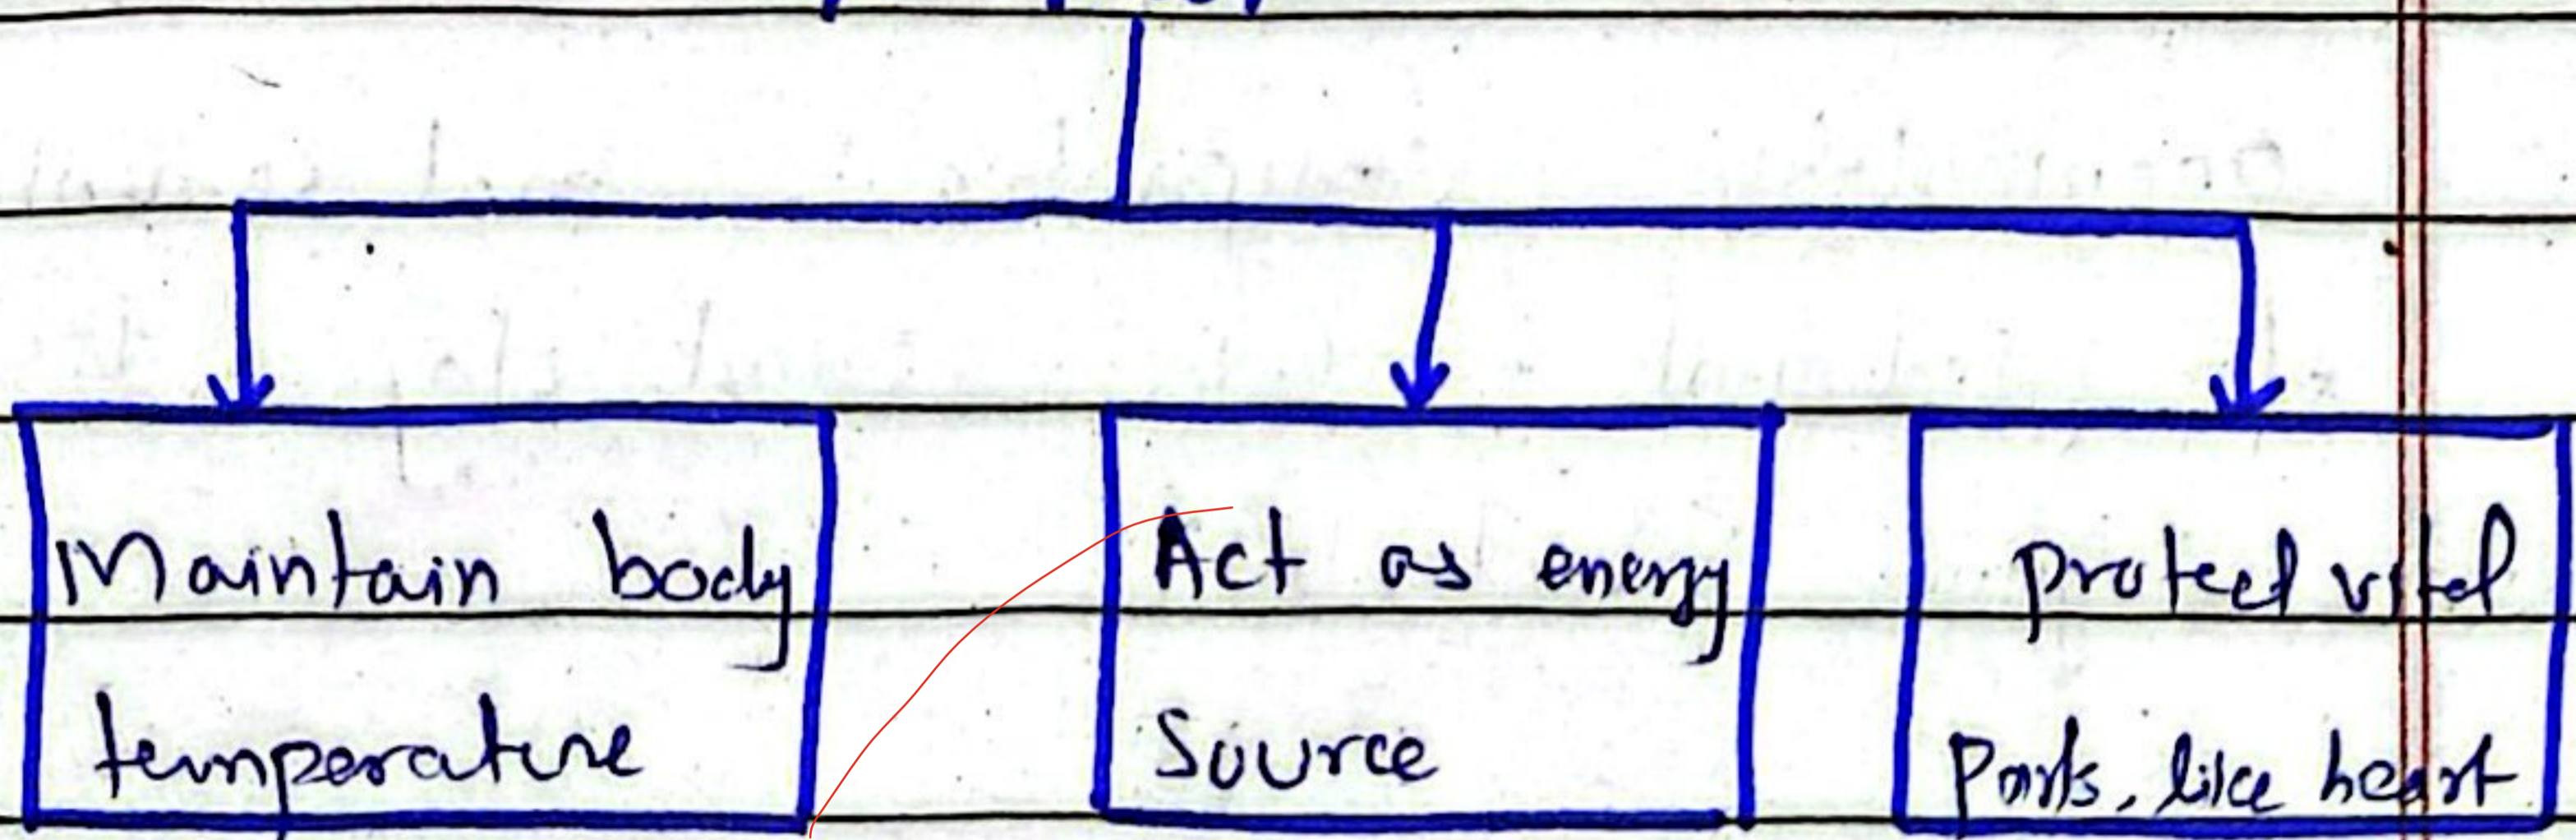 Maintain body
temperature
Act as energy
Source
protect vital
parts, like heart